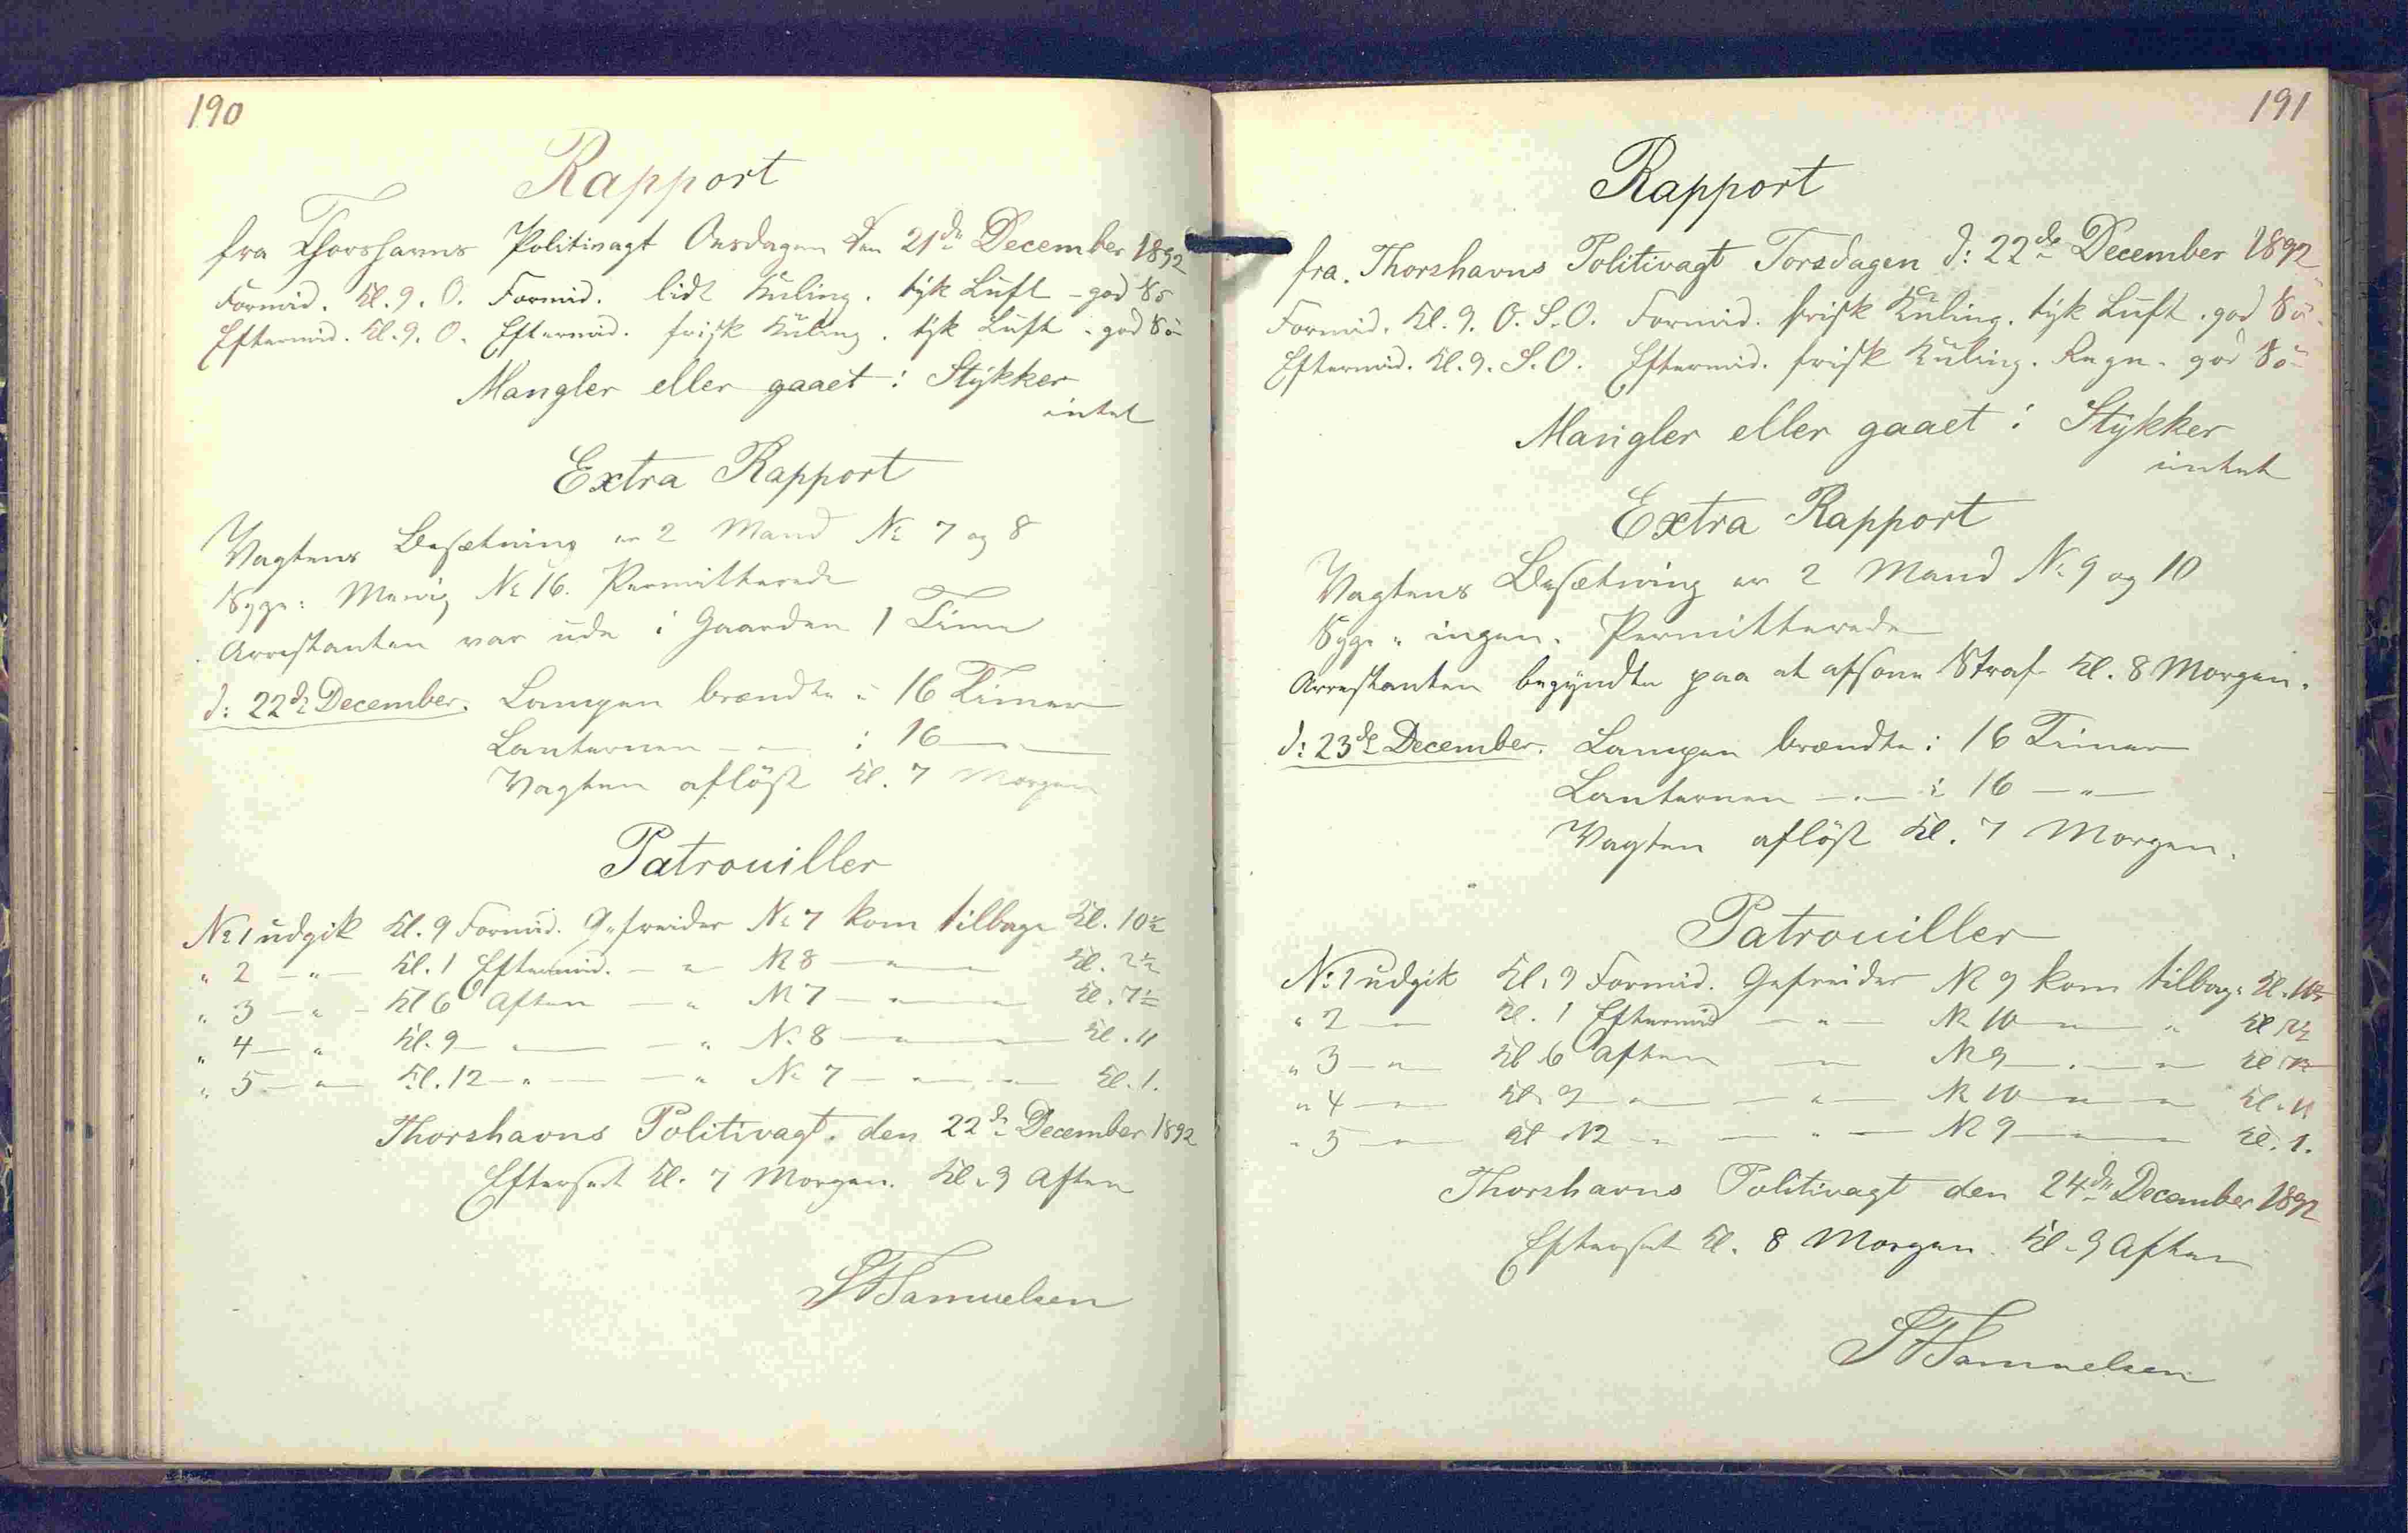 190
Rapport
fra Thorshavns Politivagt Onsdagen den 21de December 1892
Formid. Kl. 9. O. Formid. lidt Kuling. tyk Luft - god Sö
Eftermid. Kl. 9. O. Eftermid. frisk Kuling. tyk Luft - god Sö
Mangler eller gaaet i Stykker
intet
Extra Rapport
Vagtens Besætning er 2 Mand No 7 og 8
Syge: Menig No 16. Permitterede
Arrestanten var ude i Gaarden 1 Time
d: 22de December. Lampen brændte i 16 Timer
Lanternen — " — i 16 — " —
Vagten aflöst Kl. 7 Morgen
Patrouiller
No 1 udgik Kl. 9 Formid. Gefreider No 7 kom tilbage Kl. 10½
" 2 — " — Kl. 1 Eftermid. — " — No 8 — " — " — Kl. 2½
" 3 — " — Kl 6 Aften — " — No 7 — " — " — Kl. 7½
" 4 — " — Kl. 9 — " — — " — No 8 — " — " — Kl. 11
" 5 — " — Kl. 12 — " — — " — No 7 — " — " — Kl. 1.
Thorshavns Politivagt. den 22de December 1892
Efterset Kl. 7 Morgen. Kl. 9 Aften
Samuelsen
191
Rapport
fra. Thorshavns Politivagt Torsdagen d: 22de December 1892
Formid. Kl. 9. O. S. O. Formid. frisk Kuling. tyk Luft. god Sö
Eftermid. Kl. 9. S. O. Eftermid. frisk Kuling. Regn. god Sö
Mangler eller gaaet i Stykker
intet
Extra Rapport
Vagtens Besætning er 2 Mand No 9 og 10
Syge " ingen. Permitterede
Arrestanten begyndte paa at afsone Straf Kl. 8 Morgen.
d: 23de December. Lampen brændte i 16 Timer
Lanternen — " — i 16 — " —
Vagten aflöst Kl. 7 Morgen.
Patrouiller
No 1 udgik Kl. 9 Formid. Gefreider No 9 kom tilbage Kl. 10½
" 2 — " — Kl. 1 Eftermid — " — No 10 — " — " Kl 2½
" 3 — " — Kl 6 Aften — " — No 9 — " — " — Kl 7½
" 4 — " — Kl. 9 — " — — " — No 10 — " — " — Kl. 11
" 5 — " — Kl 12 — " — — " — No 9 — " — " — Kl. 1.
Thorshavns Politivagt den 24de December 1892
Efterset Kl. 8 Morgen. Kl. 9 Aften
Samuelsen